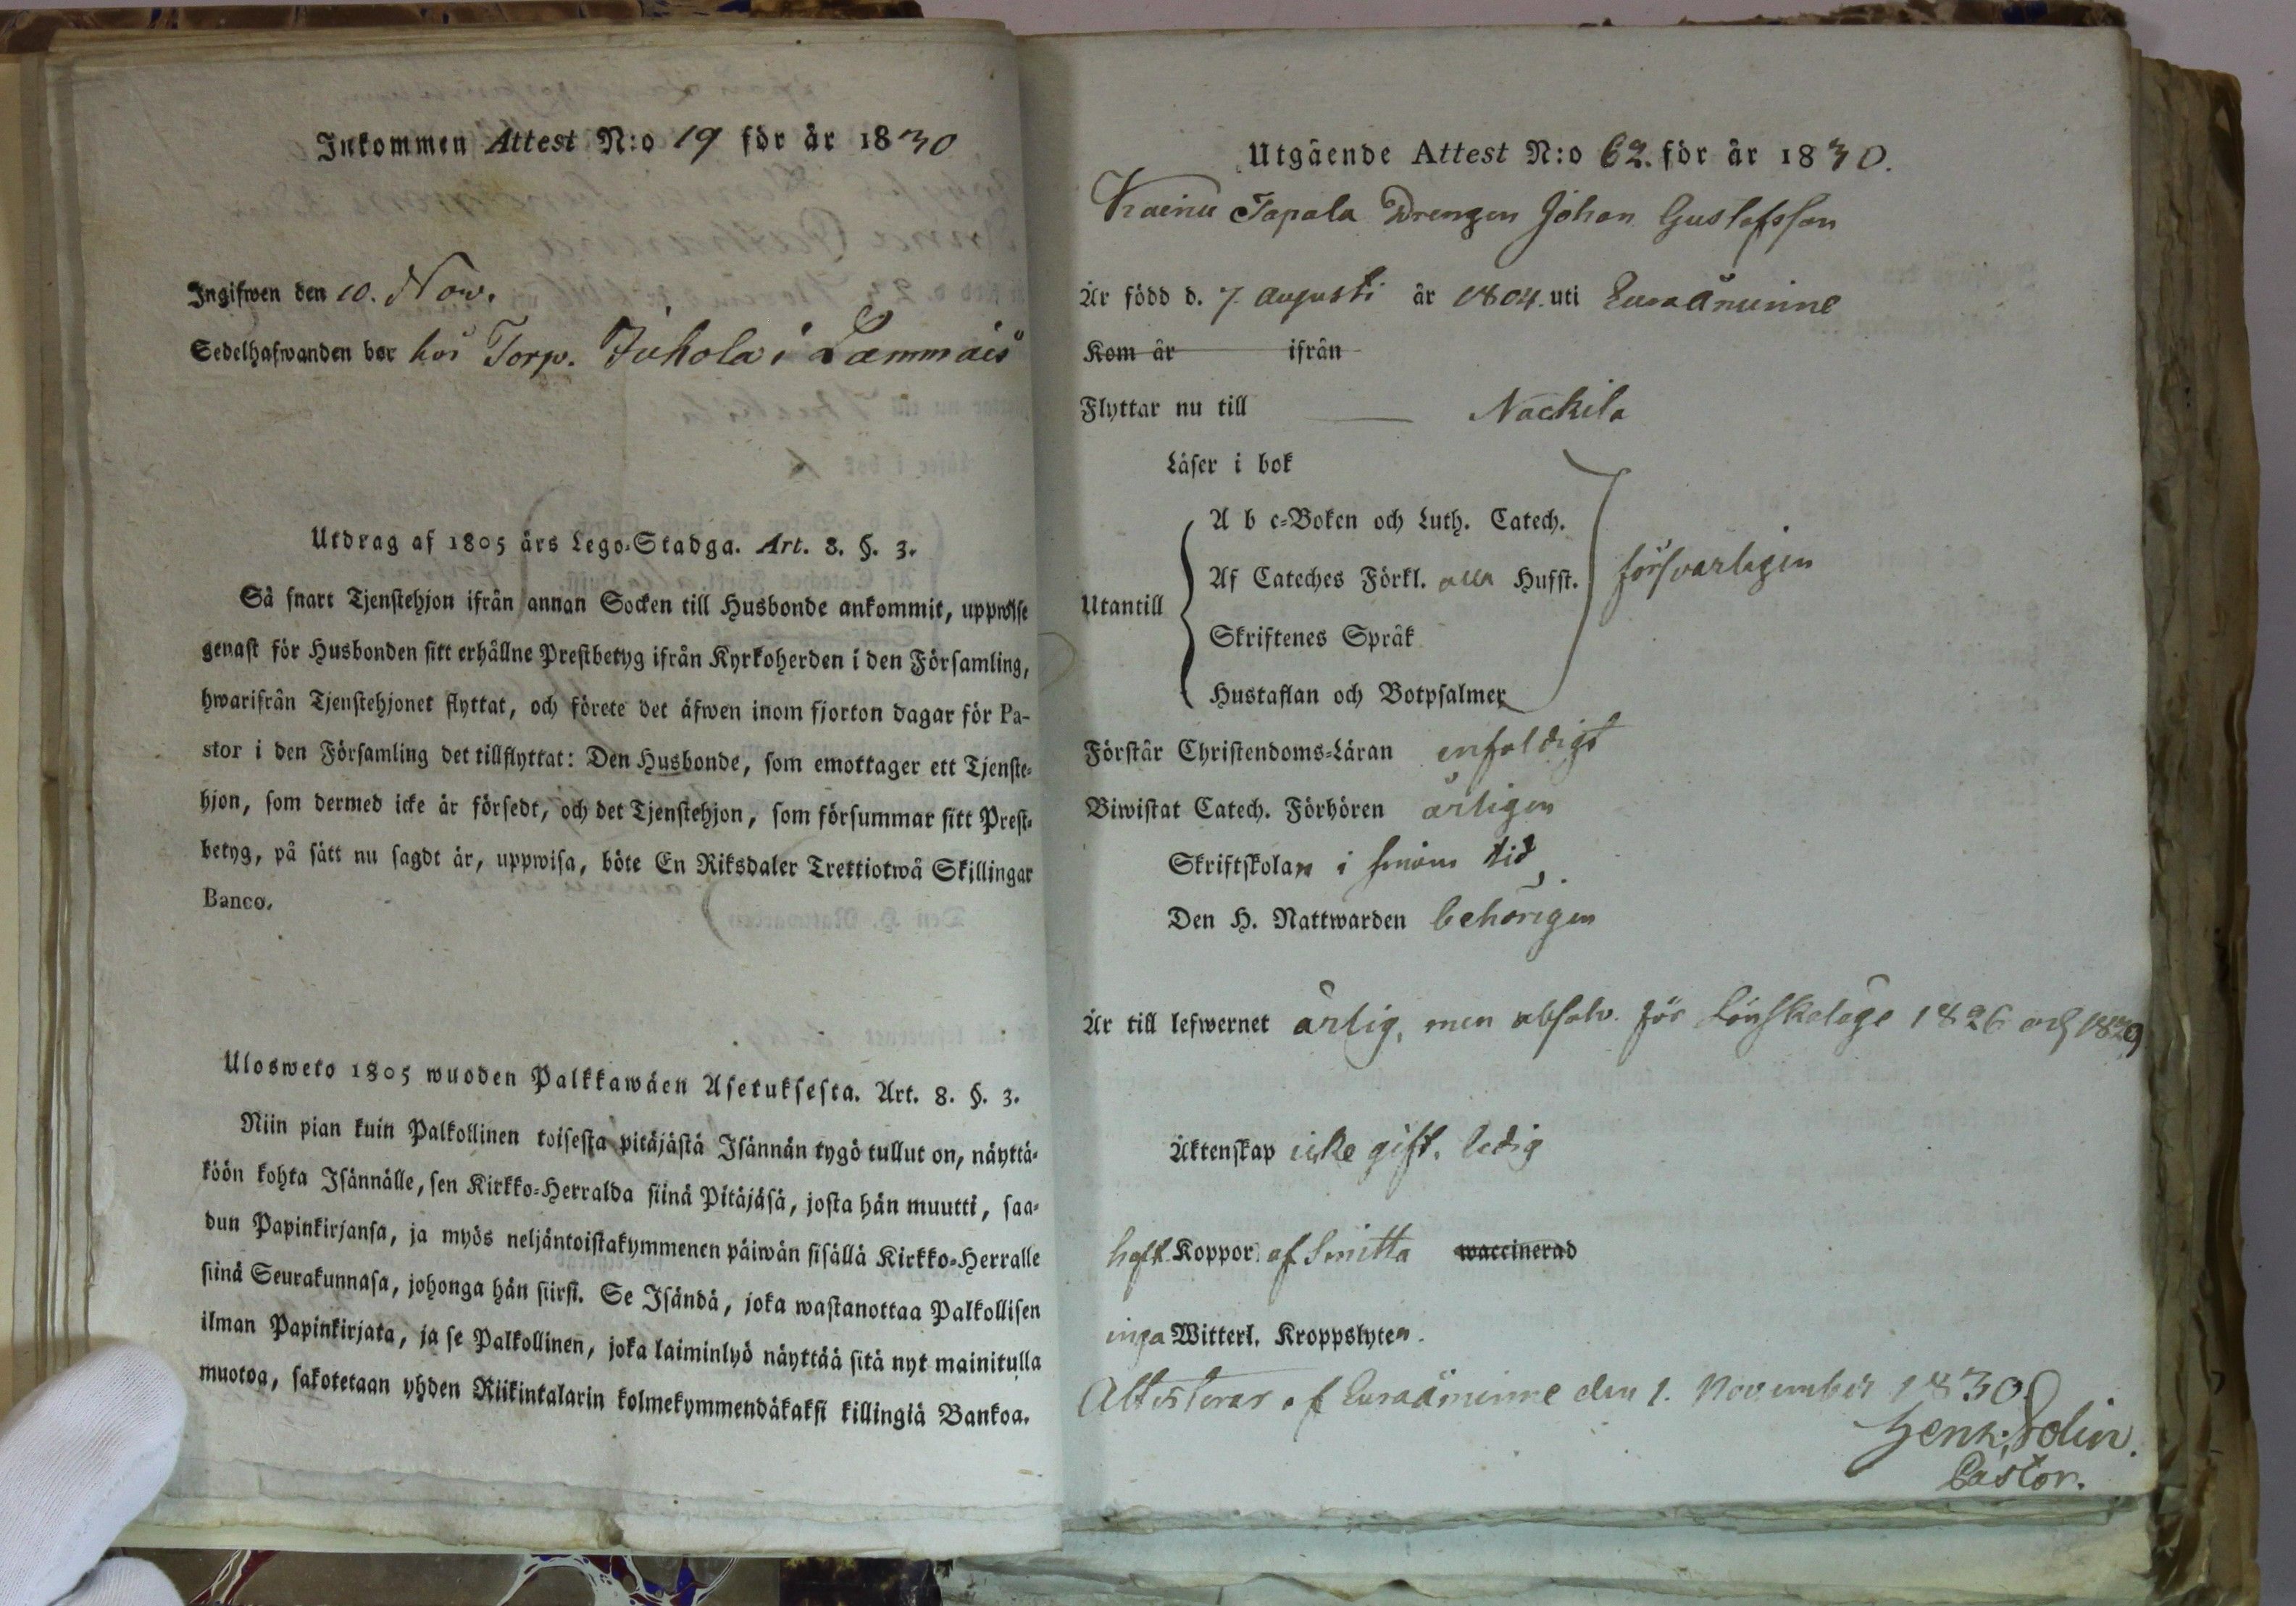 Inkommen Attest N:o 19 för år 1830
Ingifwen den 10. Nov.
Sedelhafwanden bor hos Torp. Juhola i Lammais
Utdrag af 1805 års Lego-Stadga. Art. 8. §. 3.
Så snart Tjenstehjon ifrån annan Socken till Husbonde ankommit, uppwise
genast för Husbonden sitt erhållne Prestbetyg ifrån Kyrkoherden i den Församling,
hwarifrån Tjenstehjonet flyttat, och förete det äfwen inom fjorton dagar för Pa-
stor i den Församling det tillflyttat: Den Husbonde, som emottager ett Tjenste-
hjon, som dermed icke är försedt, och det Tjenstehjon, som försummar sitt Prest-
betyg, på sätt nu sagdt är, uppwisa, böte En Riksdaler Trettiotwå Skillingar
Banco.
Ulosweto 1805 wuoden Palkkawäen Asetuksesta. Art. 8. §. 3.
Niin pian kuin Palkollinen toisesta pitäjästä Isännän tygö tullut on, näyttä-
köön kohta Isännälle, sen Kirkko-Herralda siinä Pitäjäsä, josta hän muutti, saa-
dun Papinkirjansa, ja myös neljäntoistakymmenen päiwän sisällä Kirkko-Herralle
siinä Seurakunnasa, johonga hän siirsi. Se Isändä, joka wastanottaa Palkollisen
ilman Papinkirjata, ja se Palkollinen, joka laiminlyö näyttää sitä nyt mainitulla
muotoa, sakotetaan yhden Riikintalarin kolmekymmendäkaksi killingiä Bankoa.
Utgående Attest N:o 62. för år 1830.
Tapala Drengen Johan Gustafsson
Är född d. 7 augusti år 1804. uti Euraåminne
Kom år ifrån
Flyttar nu till Nackila
Läser i bok
A b c-Boken och Luth. Catech.
Af Cateches Förkl. alla Husst.
försvarligen
Utantill
Skriftenes Språk
Hustaflan och Botpsalmer
Förstår Christendoms-Läran enfaldigt
Biwistat Catech. Förhören årligen
Skriftskolan i sinom tid
Den H. Nattwarden behörigen
Är till lefwernet ärlig, men absolv. för Lönskaläge 1826 och 1829
Äktenskap icke gift. ledig
haft Koppor af Smitta waccinerad
inga Witterl. Kroppslyten.
Attesterar af Euraåminne den 1. November 1830
Henr. Polin.
Pastor.